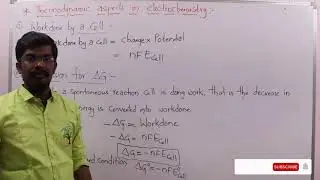 * Thermodynamic aspects in electrochemistry:-
Workdone by a Cell:-
workdone by a Cell = charge x Potential
= nFE cell
for ΔG:-
a spontaneous reaction Cell is doing work, that is the decrease in
energy is Converted into workdone
-ΔG = Workdone
-ΔG = nFE cell
ΔG = -nFE cell
condition ΔG° = -nFE° cell
SUBSCRIBE